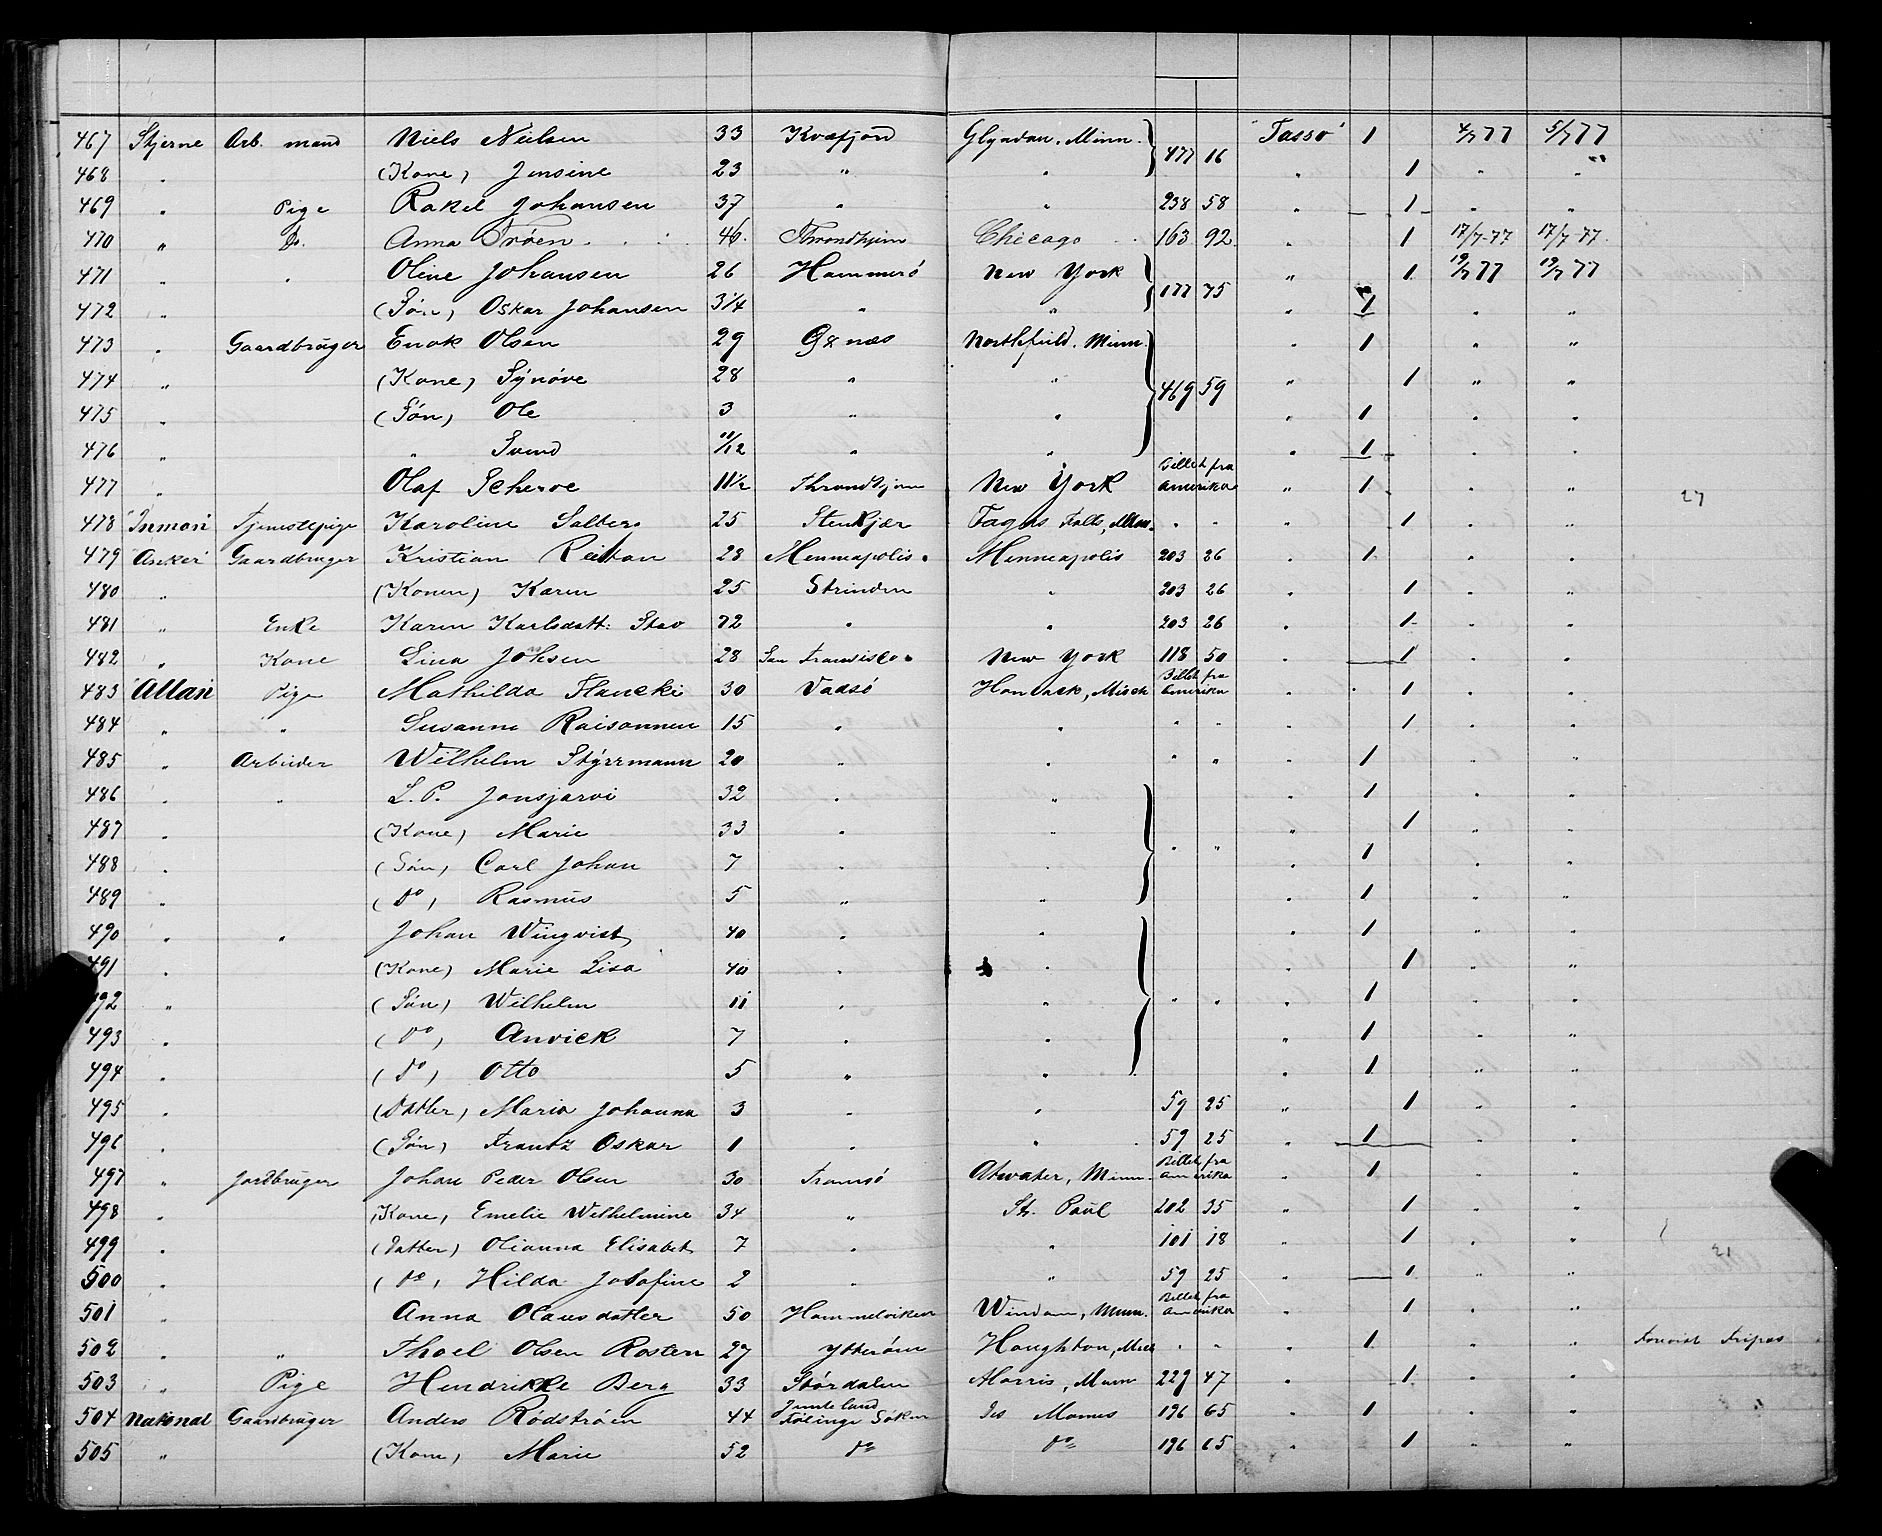 467 Stjerne Arb. mand Niels Nielsen 33 Kvæfjord Glyndon. Minn. 477 16 "Tasso" 1 4/7 77 5/7 77
468 " (Kone) Jensine 23 " " " 1 " "
469 " Pige Rakel Johansen 37 " " 238 58 " 1 " "
470 " Do. Anna Trøen 46. Throndhjem Chicago 163 92 " 1 17/7-77 17/7-77.
471 " " Oline Johansen 26 Hammerø New York 177 75 " 1. 19/7 77 19/7 77
472 " (Søn) Oskar Johansen 3 1/4 " " " 1 " "
473 " Gaardbruger Enok Olsen 29 Øxnæs Northfield. Minn. 469 59 " 1 " "
474 " (Kone) Synøve 28 " " " 1 " "
475 " (Søn) Ole 3 " " " 1 " "
476 " " Svend 11/12 " " " 1 " "
477 " Olaf Scheroe 11 1/2 Throndhjem New York Billet fra Amerika " 1 " " 27
478 "Inman" Tjenestepige Karoline Salberg 25 Stenkjær Fagus Falls, Minn. " " " 1 " "
479 "Anker" Gaardbruger Kristian Reitan 28 Menneapolis. Menneapolis 203 26 " 1 " "
480 " (Konen) Karen 25 Strinden " 203 26 " 1 " "
481 " Enke Karen Karlsdatt: Stav 72 " " 203 26 " 1. " "
482 " Kone Lina Johsen 28 San Fransisco. New York 118 50 " 1 " "
483 "Allan" Pige Mathilda Flancki 30 Vadsø Hancock, Misch Billet fra Amerika " 1 " "
484 " " Susanne Raisannen 15 " " " " " 1 " "
485 " Arbeider Wilhelm Styrrmann 20 " " " " " 1 " "
486 " " L. P. Jonsjarvi 32 " " " 1 " "
487 " (Kone) Marie 33 " " " 1 " "
488 " (Søn) Carl Johan 7 " " " " " 1 " "
489 " (Do) Rasmus 5 " " " 1 " "
490 " " Johan Wingvist 40 " " " 1 " "
491 " (Kone) Marie Lisa 40 " " " 1 " "
492 " (Søn) Wilhelm 11 " " " " " 1 " "
493 " (Do) Anvick 7 " " " 1 " "
494 " (Do) Otto 5 " " " 1 " "
495 " (Datter) Maria Johanna 3 " " 59 25 " 1 " "
496 " (Søn) Frantz Oskar 1 " " 59 25 " 1 " "
497 " Jordbruger Johan Peder Olsen 30 Tromsø Atwater, Minn. Billet fra Amerika " 1 " "
498 " (Kone) Emelie Wilhelmine 34 " St. Paul 202 35 " 1 " "
499 " (Datter) Olianna Elisabet 7 " " 101 18 " 1 " " 21
500 " (Do) Hilda Josofine 2 " " 59 25 " 1 " "
501 " Anna Olausdatter 50 Hommelviken Windom, Minn. Billet fra Amerika " 1 " "
502 " " Thoel Olsen Rosten 27 Ytterøen Houghton, Mich " " " 1 " " Fripas
503 " Pige Hendrikke Berg 33 Størdalen Morris, Minn 229 47 " 1 " "
504 National Gaardbruger Anders Rødstrøm 44 Jemteland Følinge Søken Des Moines 196 65 " 1 " "
505 " (Kone) Marie 52 Do Do 196 65 " 1 " "